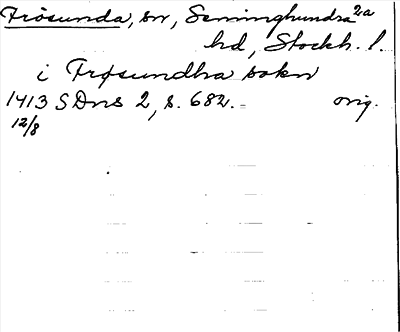 Frösunda, sn, Seminghundra 2a
hd, Stockh. l.
i Frøsundha sokn
1413 SDns 2, s. 682. orig.
12/8